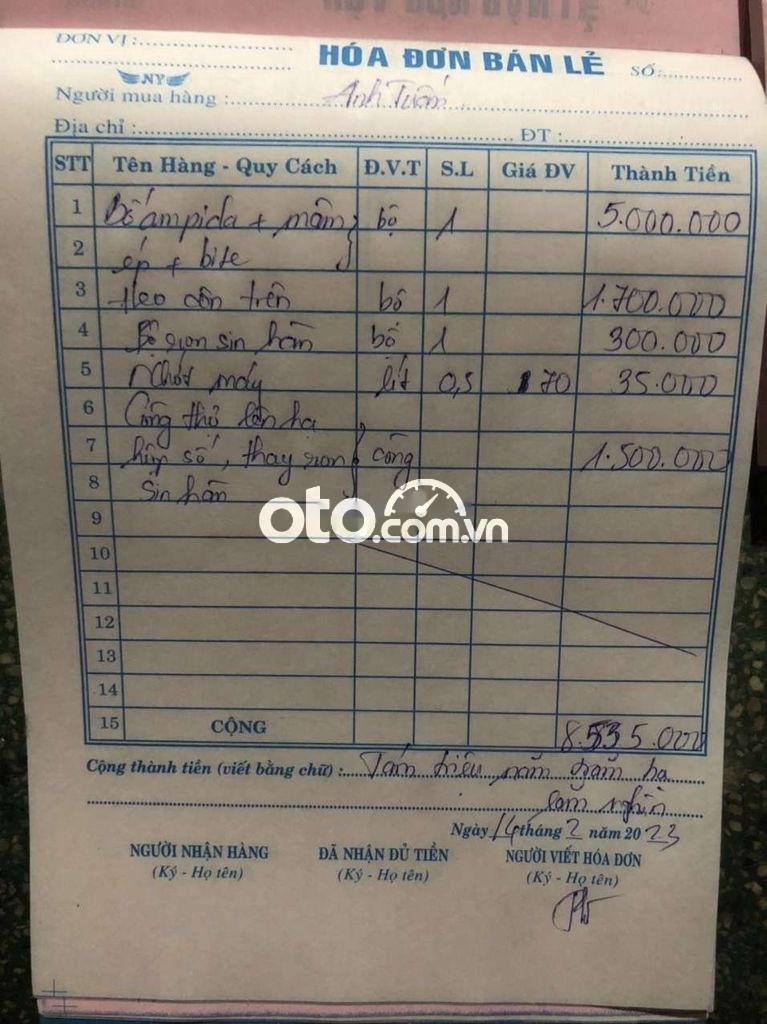 ĐƠN VỊ :
HÓA ĐƠN BÁN LẺ
SỐ:
NY
Người mua hàng : Anh Tuấn
Địa chỉ : ĐT :
STT Tên Hàng - Quy Cách Đ.V.T S.L Giá ĐV Thành Tiền
1 Bố ampida + mâm bộ 1 5.000.000
2 ép + bite
3 Heo côn trên bộ 1 1.700.000
4 Bộ ron sin hàn bộ 1 300.000
5 Nhớt máy lít 0,5 70 35.000
6 Công thợ lên hạ
7 hộp số, thay ron công 1.500.000
8 Sin hàn
9
oto.com.vn
10
11
12
13
14
15 CỘNG 8.535.000
Cộng thành tiền (viết bằng chữ) : Tám triệu năm trăm ba
lăm nghìn
Ngày 14 tháng 2 năm 2023
NGƯỜI NHẬN HÀNG ĐÃ NHẬN ĐỦ TIỀN NGƯỜI VIẾT HÓA ĐƠN
(Ký - Họ tên) (Ký - Họ tên) (Ký - Họ tên)